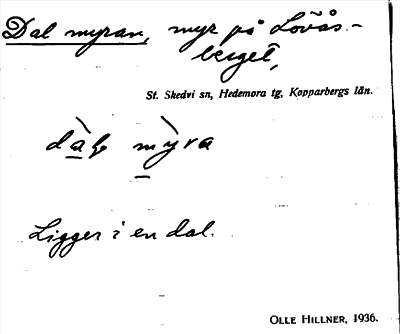 Dal myran, myr på Lovås-
berget,
St. Skedvi sn, Hedemora tg, Kopparbergs län.
myra
Ligger i en dal.
OLLE HILLNER, 1936.